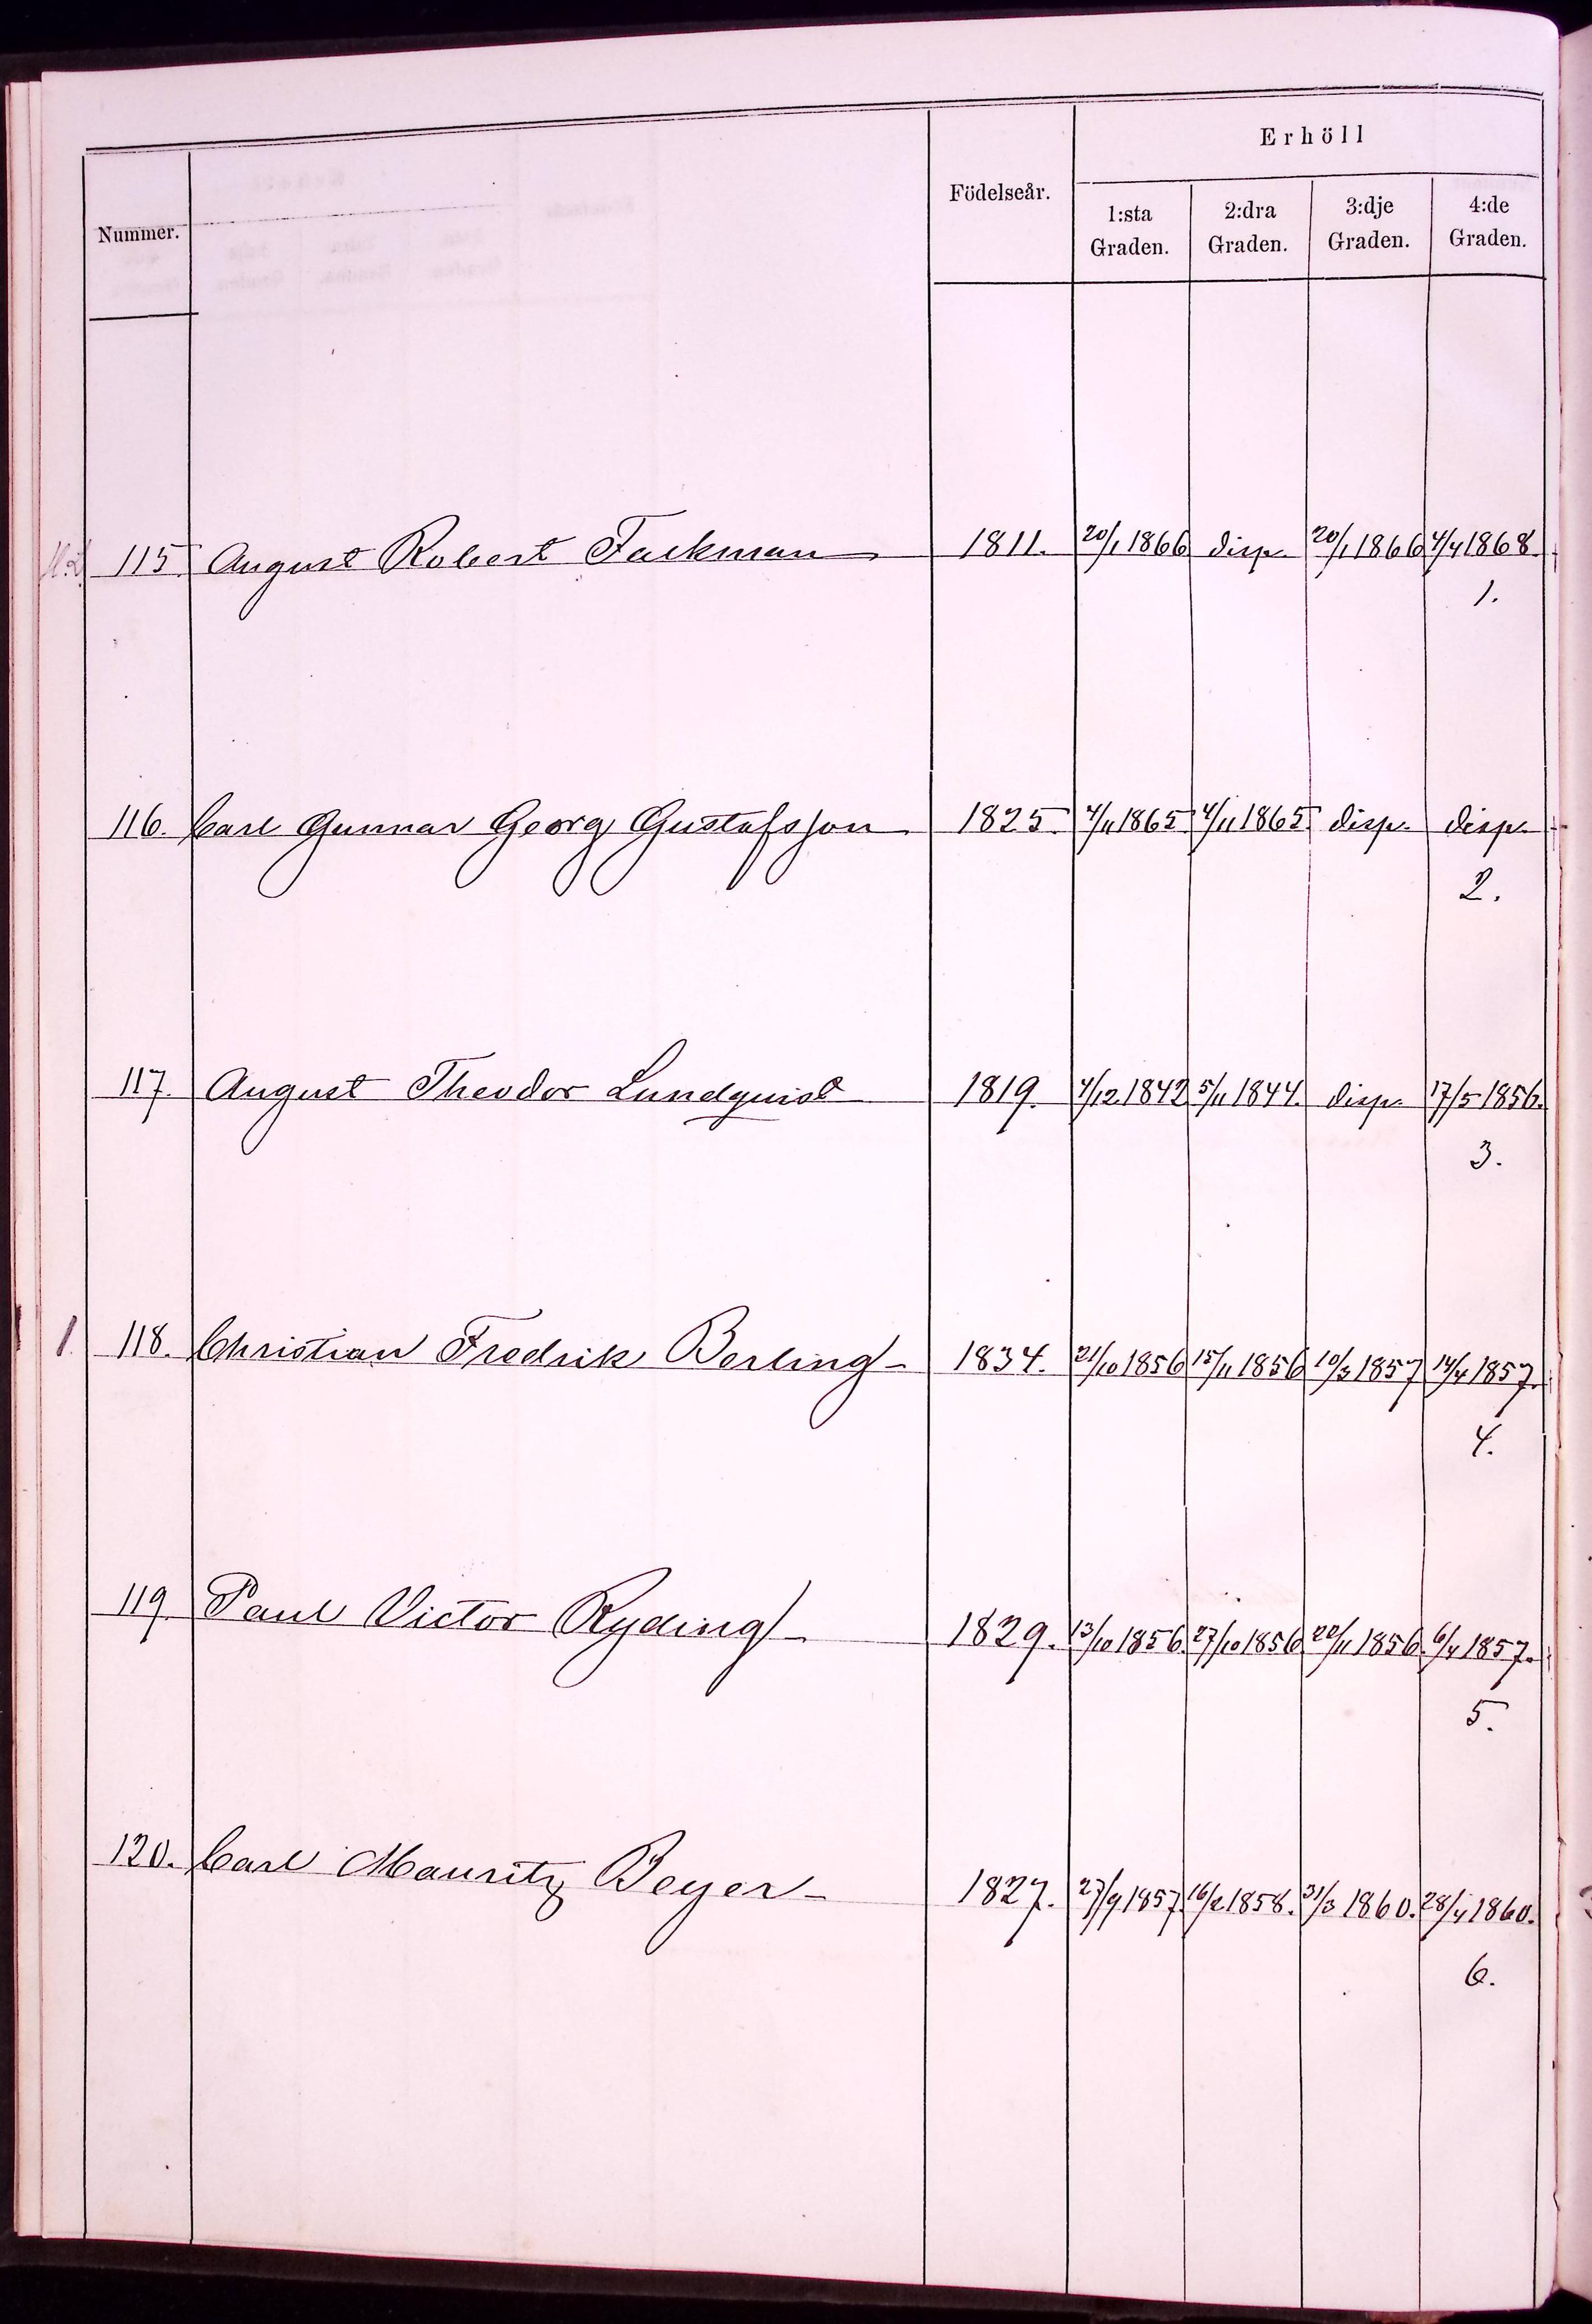 Erhöll
Nummer. Födelseår. 1:sta Graden. 2:dra Graden. 3:dje Graden. 4:de Graden.
115. August Robert Fackman 1811. 20/1 1866 disp. 20/1 1866 4/4 1868.
1.
116. Carl Gunnar Georg Gustafsson 1825. 4/11 1865. 4/11 1865. disp. disp.
2.
117. August Theodor Lundquist 1819. 4/12 1842 5/11 1844. disp. 17/5 1856.
3.
1. 118. Christian Fredrik Berling 1834. 21/10 1856 15/11 1856 10/3 1857 14/4 1857.
4.
119. Paul Victor Ryding 1829. 13/10 1856. 27/10 1856. 20/11 1856. 6/4 1857.
5.
120. Carl Mauritz Beyer 1827. 27/9 1857. 16/2 1858. 31/3 1860. 28/4 1860.
6.